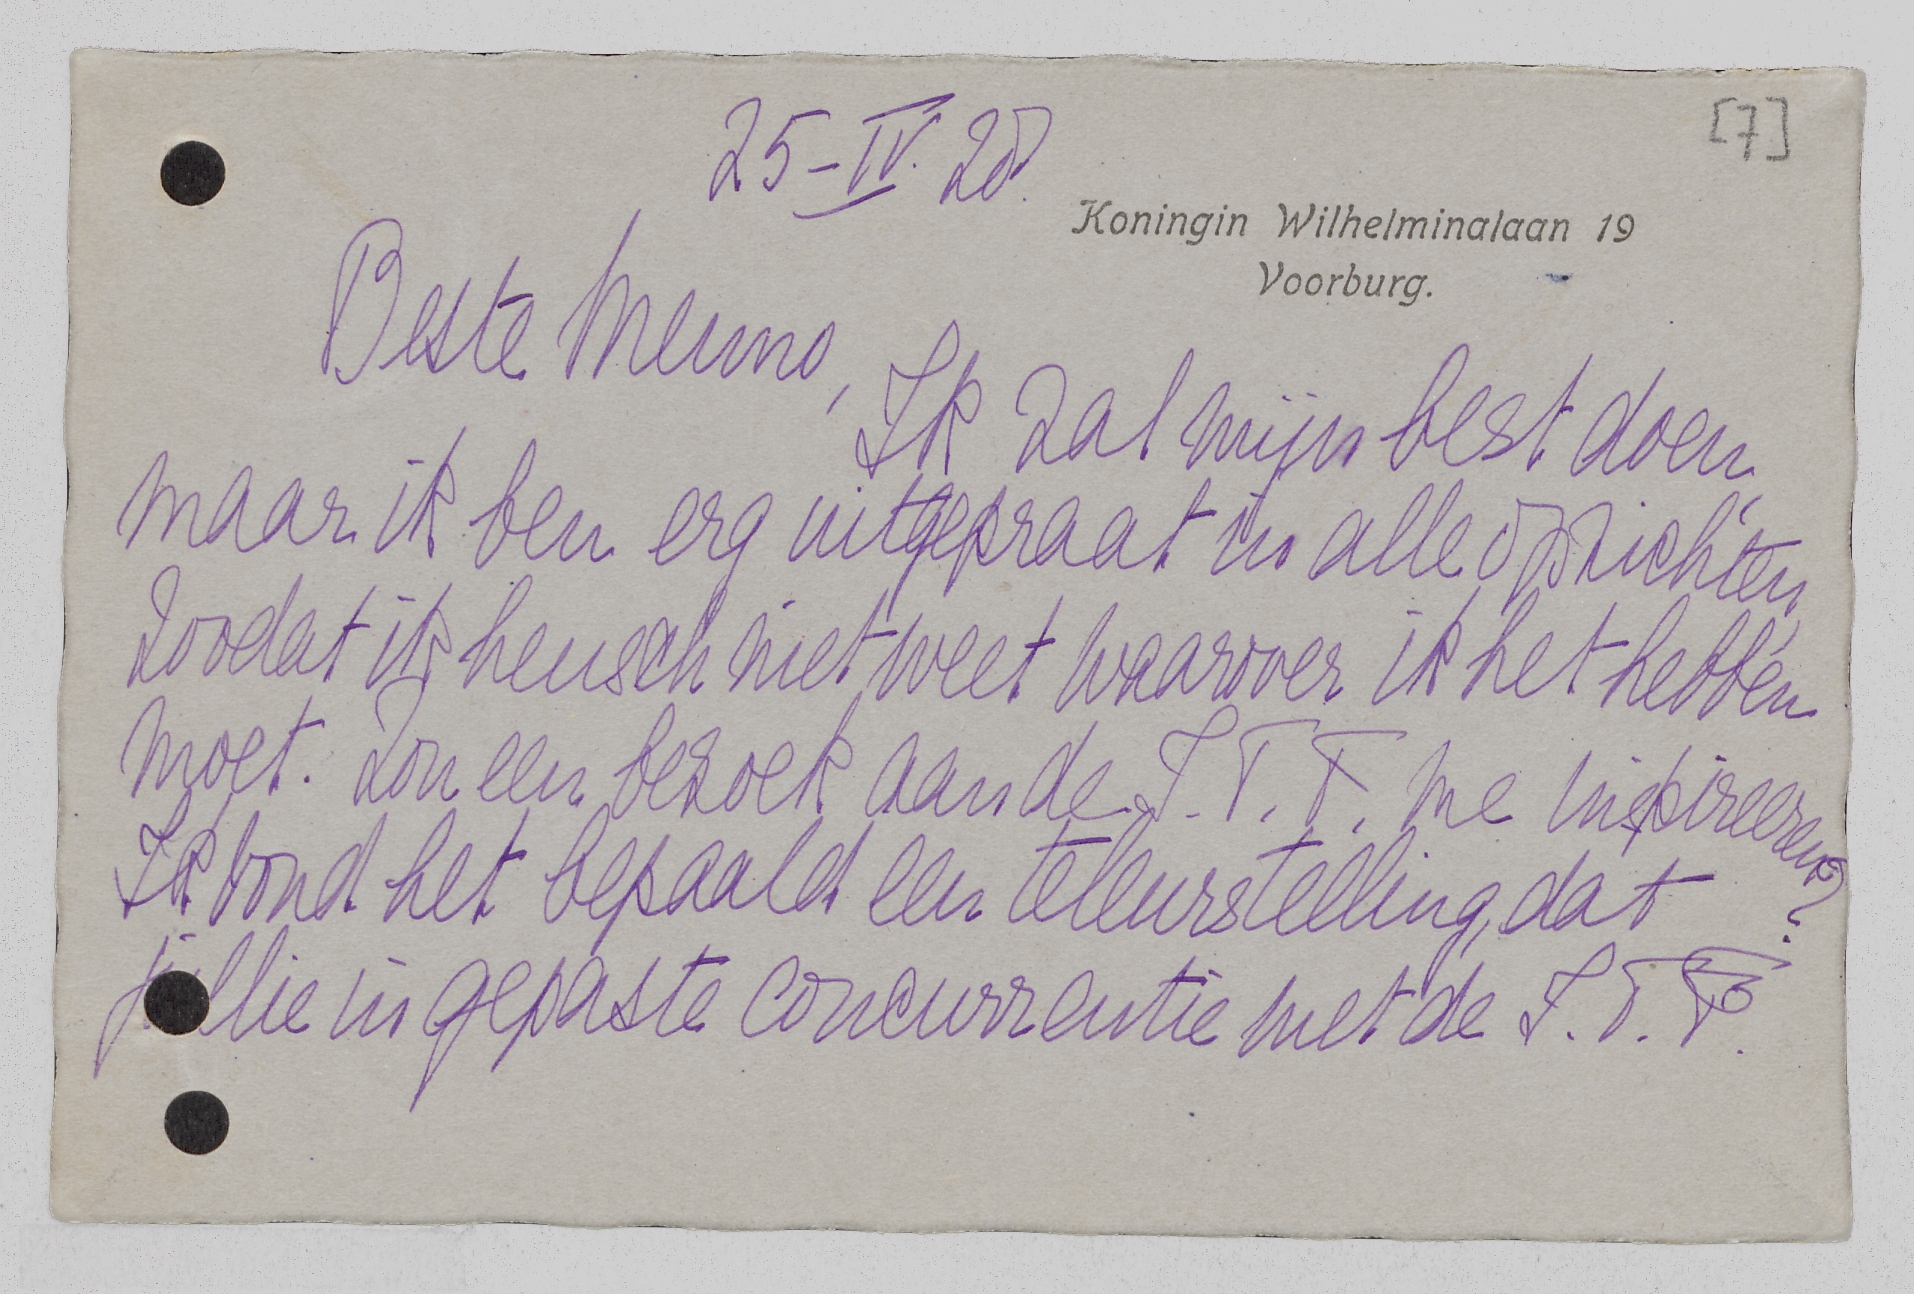 [7]
25-IV. 28.
Koningin Wilhelminalaan 19
Voorburg.
Beste Menno,
Ik zal mijn best doen,
maar ik ben erg uitgepraat in alle opzichten,
zoodat ik heusch niet weet waarover ik het hebben
moet. Zou een bezoek aan de I.T.F. me inspireeren?
Ik vond het bepaald een teleurstelling, dat
jullie in gepaste concurrentie met de I.T.F.